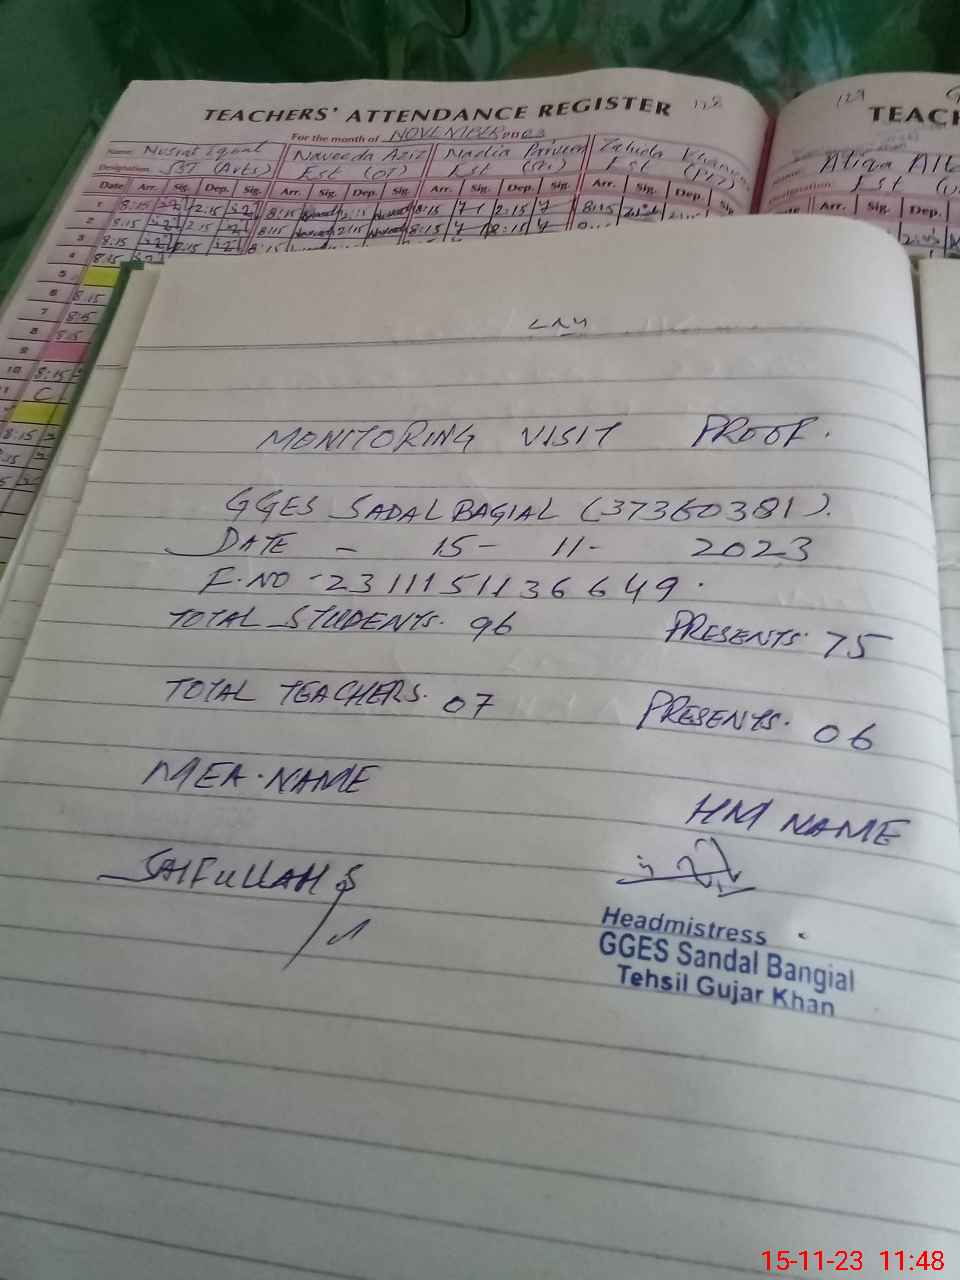 128
TEACHERS' ATTENDANCE REGISTER
For the month of NOVEMBER 2023
Name Nusrat Iqbal Naveeda Aziz Nadia Parveen Zahida Khanam
Designation SST (Arts) Est (OT) Est
Date Arr. Sig. Dep. Sig. Arr. Sig. Dep. Sig. Arr. Sig. Dep. Sig. Arr. Sig. Dep. Sig
1 8:15 2:15 8:15 2:15 8:15 2:15 8:15
2 8:15 2:15 8:15 2:15 8:15 2:15
3 8:15 2:15 8:15
4 8:15
5
6 8:15
7 8:15
8 8:15
9
10 8:15
C
8:15
129
TEACH
Atiqa
Designation Est
Arr. Sig. Dep.
MONITORING VISIT PROOF.
GGES SADAL BAGIAL (37360381).
DATE - 15- 11- 2023
F.NO -2311151136649.
TOTAL STUDENTS. 96 PRESENTS. 75
TOTAL TEACHERS. 07 PRESENTS. 06
MEA.NAME
HM NAME
SAIFULLAH
Headmistress
GGES Sandal Bangial
Tehsil Gujar Khan
15-11-23 11:48